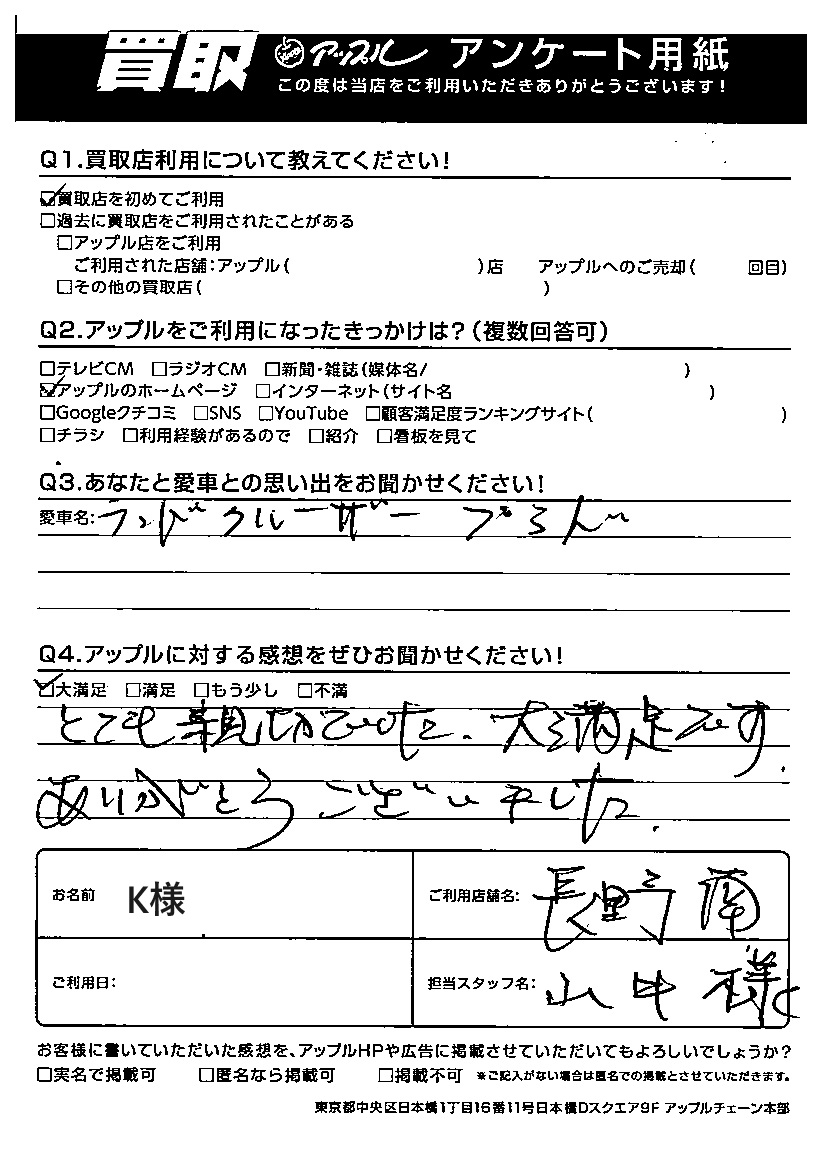 買取 アップル アンケート用紙
この度は当店をご利用いただきありがとうございます!
Q1.買取店利用について教えてください!
☑買取店を初めてご利用
□過去に買取店をご利用されたことがある
□アップル店をご利用
ご利用された店舗:アップル( )店 アップルへのご売却( 回目)
□その他の買取店( )
Q2.アップルをご利用になったきっかけは?(複数回答可)
□テレビCM □ラジオCM □新聞・雑誌(媒体名/ )
☑アップルのホームページ □インターネット(サイト名 )
□Googleクチコミ □SNS □YouTube □顧客満足度ランキングサイト( )
□チラシ □利用経験があるので □紹介 □看板を見て
Q3.あなたと愛車との思い出をお聞かせください!
愛車名:ランドクルーザー プラド
Q4.アップルに対する感想をぜひお聞かせください!
☑大満足 □満足 □もう少し □不満
とても親切でした。大満足です。
ありがとうございました。
お名前 K様 ご利用店舗名: 長野南
ご利用日: 担当スタッフ名: 山中様
お客様に書いていただいた感想を、アップルHPや広告に掲載させていただいてもよろしいでしょうか?
□実名で掲載可 □匿名なら掲載可 □掲載不可 ※ご記入がない場合は匿名での掲載とさせていただきます。
東京都中央区日本橋1丁目16番11号日本橋Dスクエア9F アップルチェーン本部